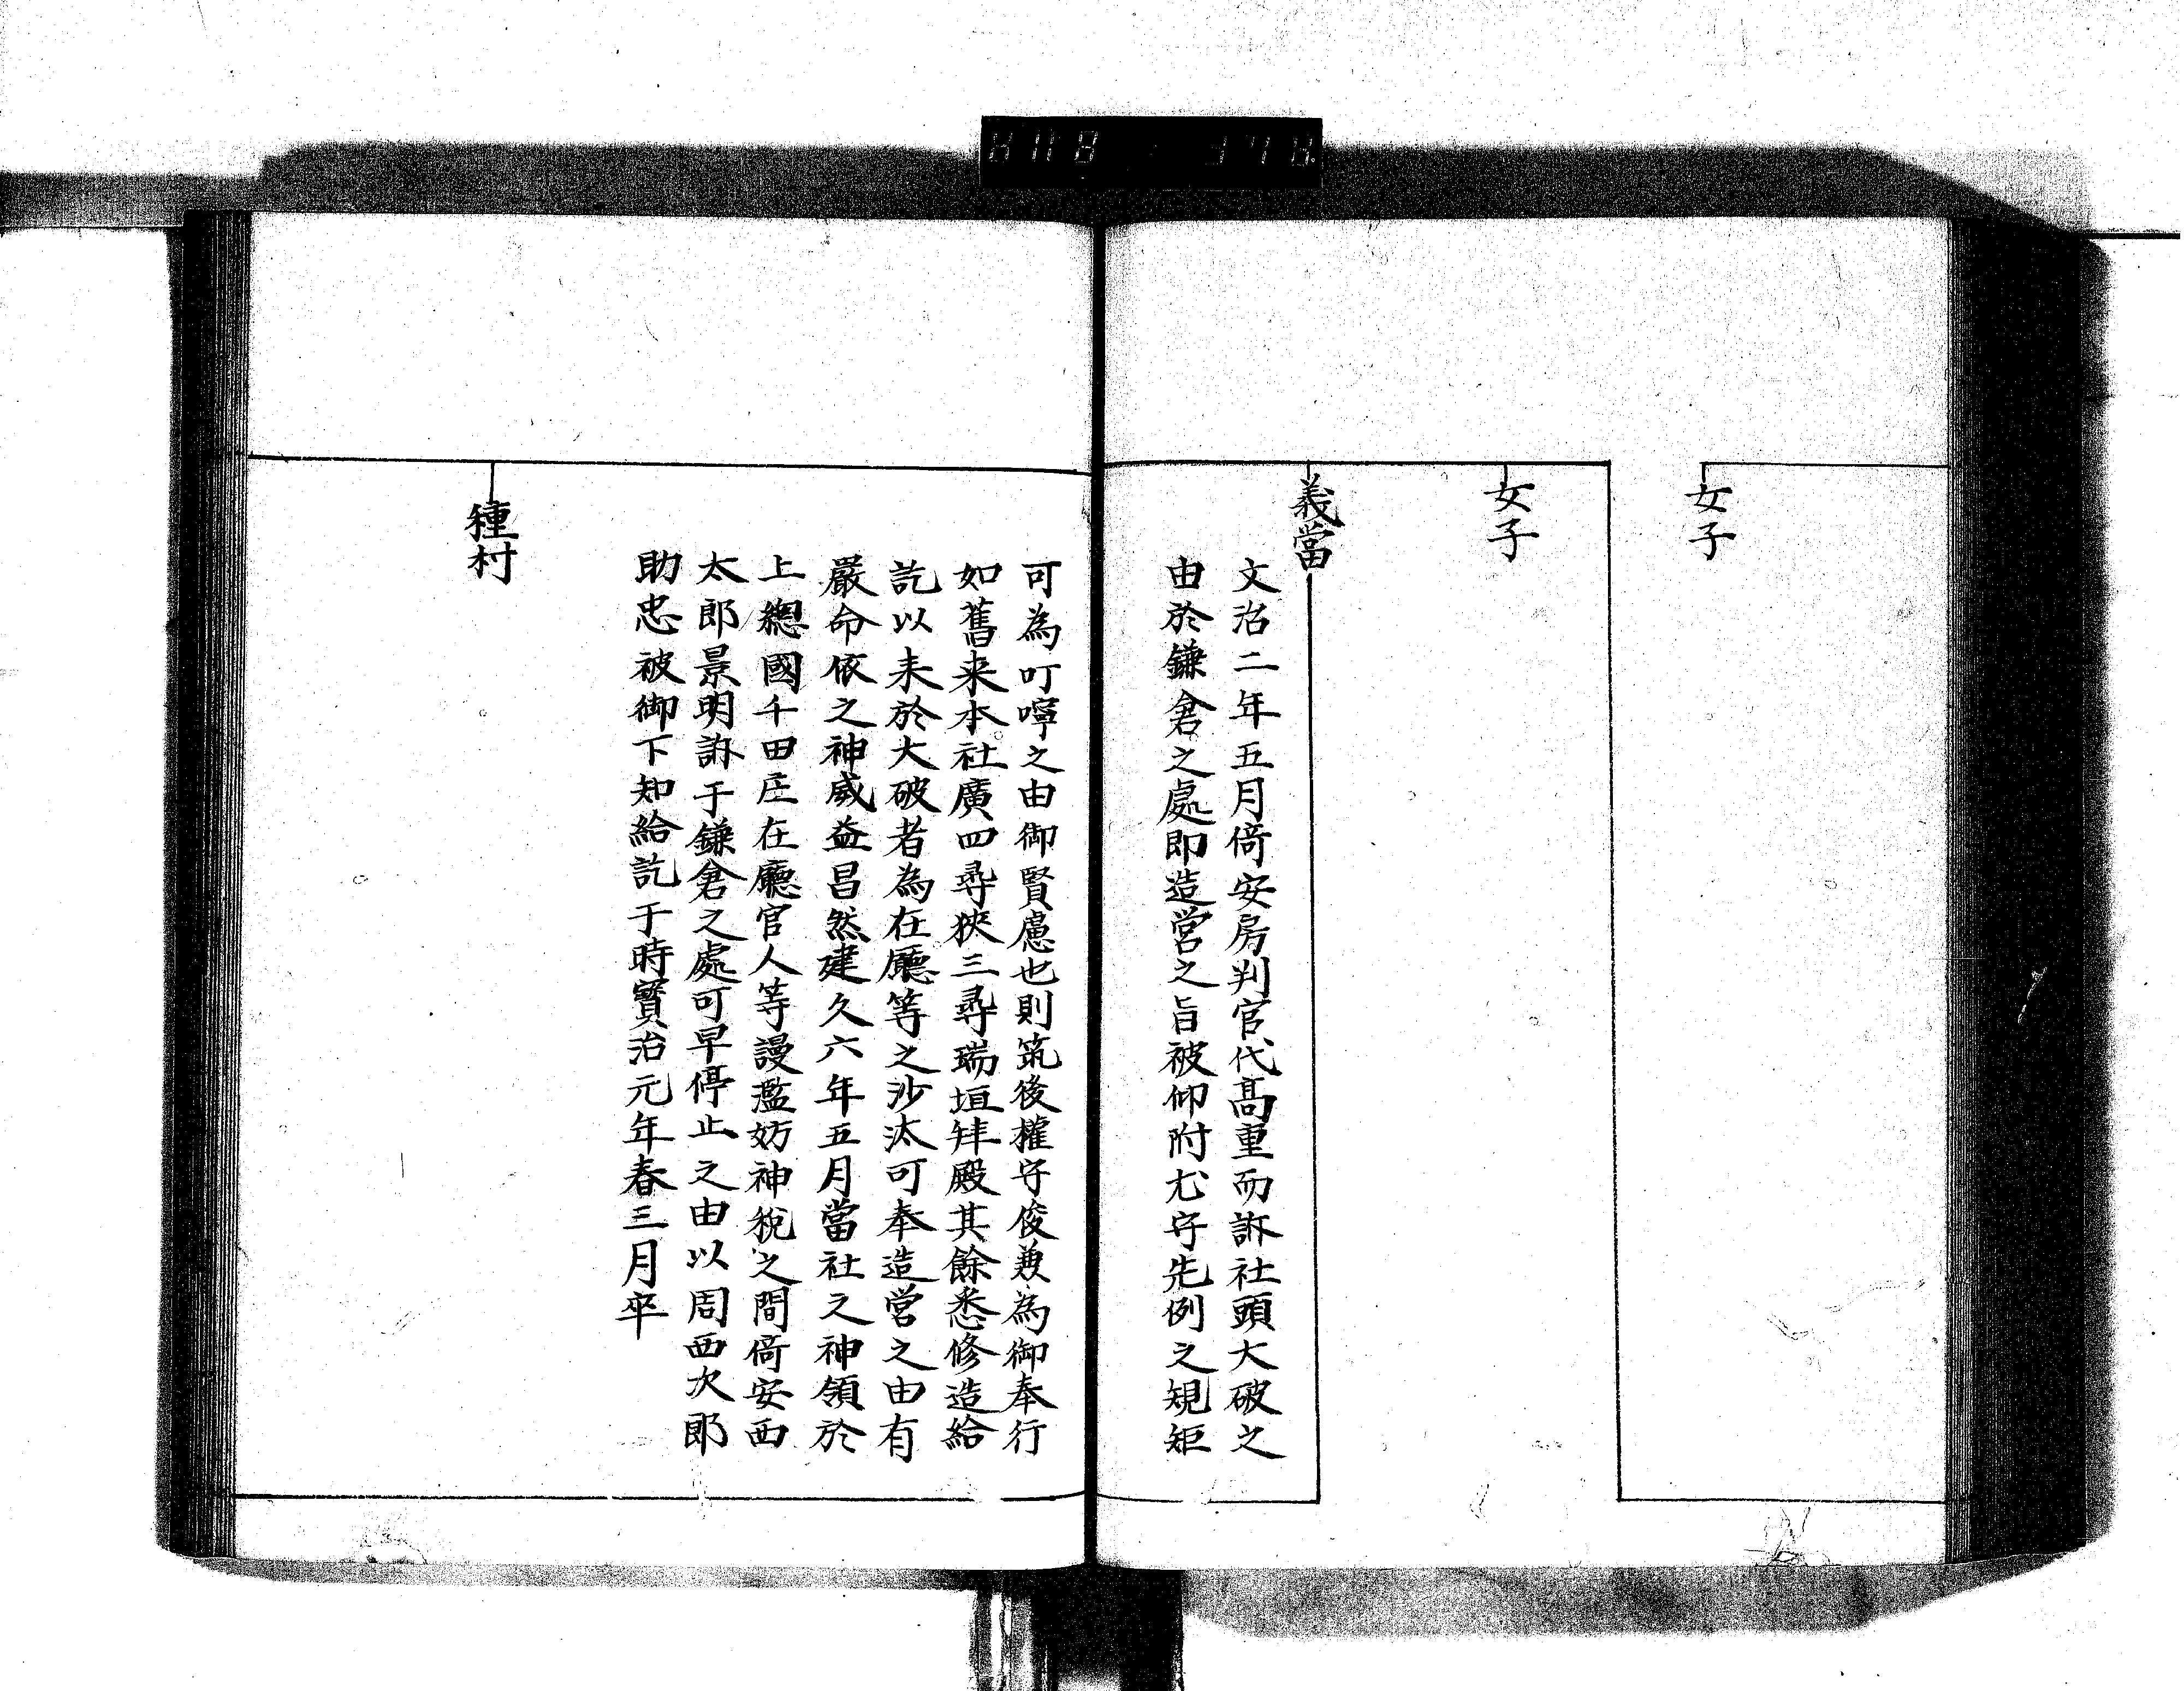 女子
女子
義當
文治二年五月倚安房判官代髙重而訴社頭大破之
由於鎌倉之處即造営之旨被仰附尤守先例之規矩
可為叮嚀之由御賢慮也則筑後權守俊兼為御奉行
如舊来本社廣四尋狹三尋瑞垣拜殿其餘悉修造給
訖以来於大破者為在廳等之沙汰可奉造営之由有
嚴命依之神威益昌然建久六年五月當社之神領於
上總國千田庄在廳官人等謾濫妨神税之間倚安西
太郎景明訴于鎌倉之處可早停止之由以周西次郎
助忠被御下知給訖于時寳治元年春三月卒
種村